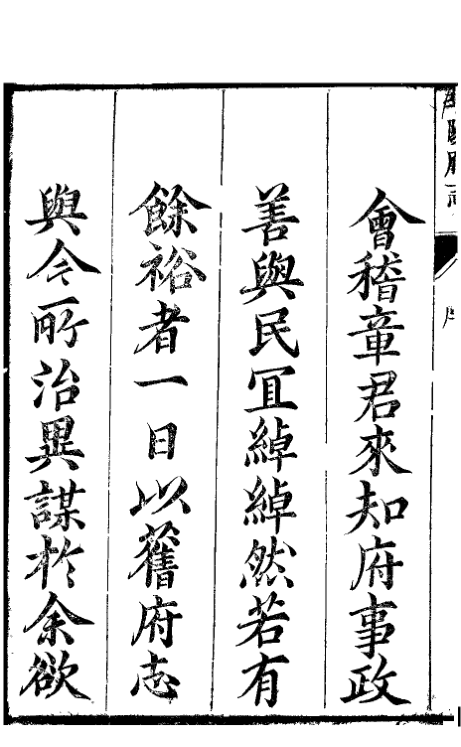 會稽章君來知府事政
善與民冝綽綽然若有
餘裕者一日以舊府志
與今所治異謀於余欲